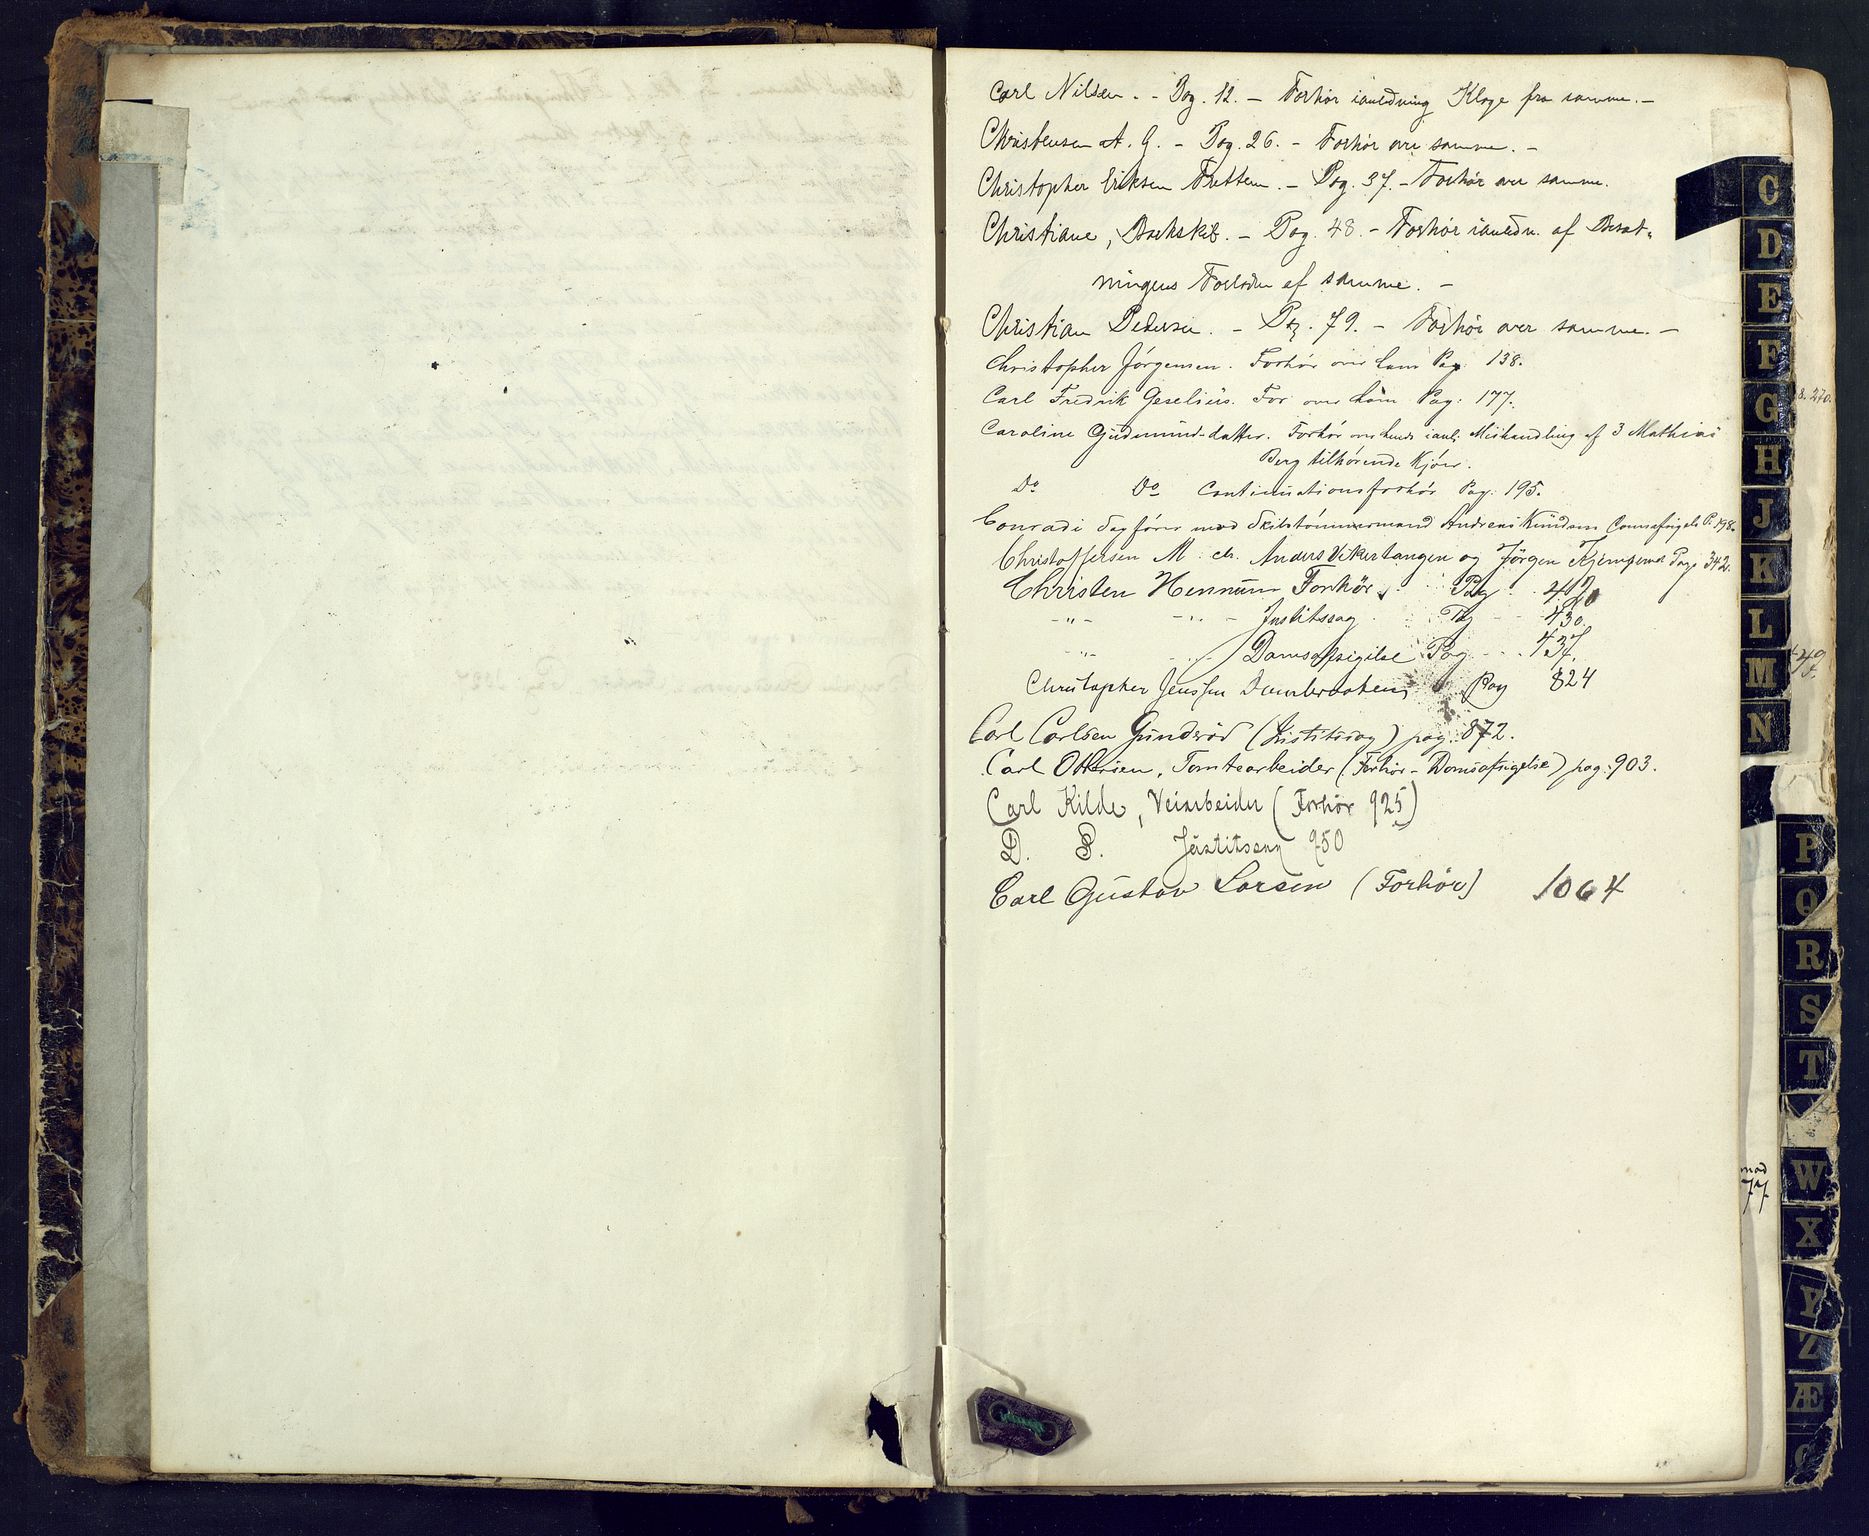 Carl Nilsen. - Pag. 12. - Forhør ianledning Klage fra samme. -
Christensen A. G. - Pag. 26. - Forhør over samme. -
Christopher Eriksen Fretten. - Pag. 37. - Forhør over samme.
Christiane, Barkskib. - Pag. 48. - Forhør ianledn. af Besæt-
ningens Forladen af samme. -
Christian Pedersen. - Pag. 79. - Forhør over samme. -
Christopher Jørgensen. Forhør over ham Pag. 138.
Carl Fredrik Geselius. For over ham Pag. 177.
Caroline Gudmundsdatter. Forhør over hende ianl. Mishandling af 3 Mathias
Berg tilhørende Kjør.
Do Do Continuationsforhør Pag. 195.
Conradi Sagfører mod Skibstømmermand Andreas Knudsen P. 198.
Christoffersen M. ctr. Anders Vikertangen og Jørgen Pag 342.
Christen Hennum Forhør. Pag 420
-"- -"- - Justitssag. Pag 430.
-"- -"- Domsafsigelse Pag 437.
Christopher Jenssen Pag 824
Carl Carlsen Gunderød (Justitssag) pag. 872.
Carl Ottersen, Tomtearbeider (Forhør - Domsafsigelse) pag. 903.
Carl Kilde, Veiarbeider (Forhør 925)
D. S. Justitssag 950
Carl Gustav Larsen (Forhør) 1064
C
D
E
F
G
H
J
K
L
M
N
P
Q
R
S
T
W
X
Y
Z
Æ
8. 270.
49
mod
77